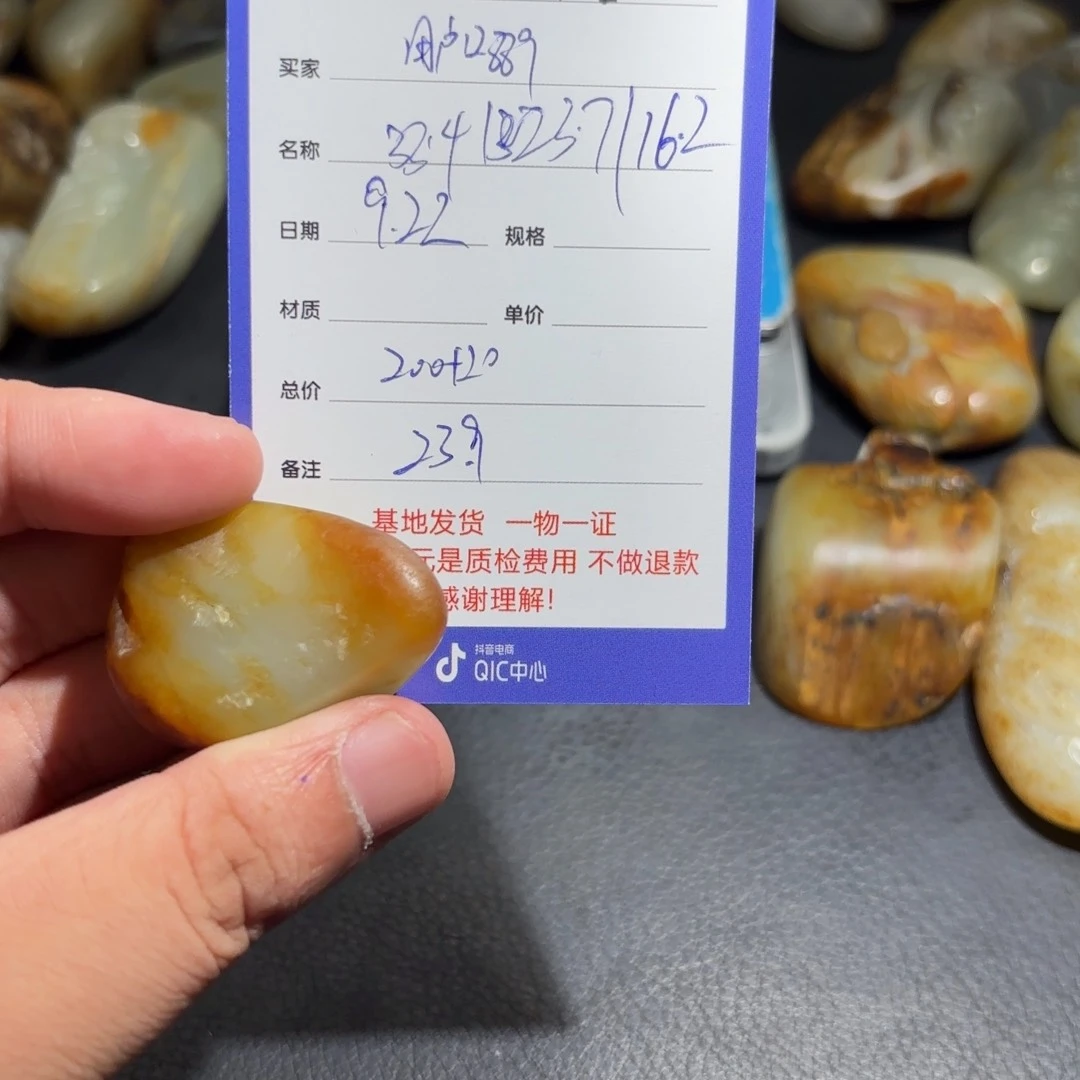 买家 用户2889
名称 33.4 23.7 16.2
日期 9.22 规格
材质 单价
总价 200+20
备注 23.9
基地发货 一物一证
元是质检费用 不做退款
感谢理解!
抖音电商
QIC中心